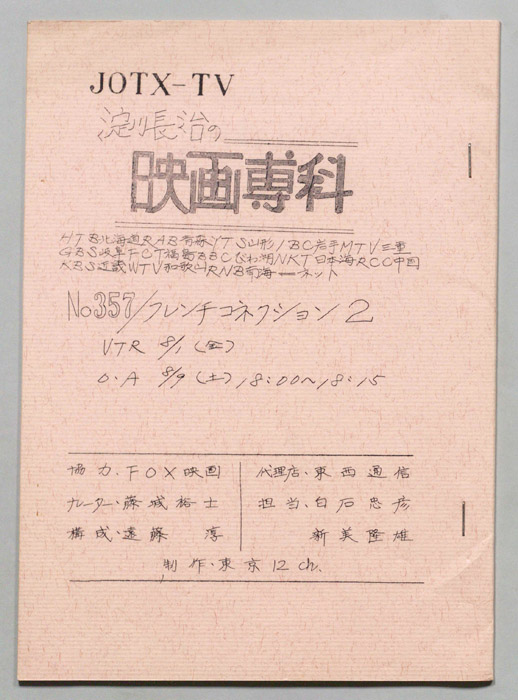 JOTX-TV
淀川長治の
映画専科
HTB北海道RAB青森YTS山形IBC岩手MTV三重
GBS岐阜FCT福島BBCびわ湖NKT日本海RCC中国
KBS近畿WTV和歌山RNB南海——ネット
No357/フレンチコネクション2
VTR 8/1(金)
O.A 8/9(土)18:00〜18:15
協力.FOX映画
ナレーター・藤城裕士
構成・遠藤 淳
代理店・東西通信
担当・白石忠彦
新美隆雄
制作・東京12ch.